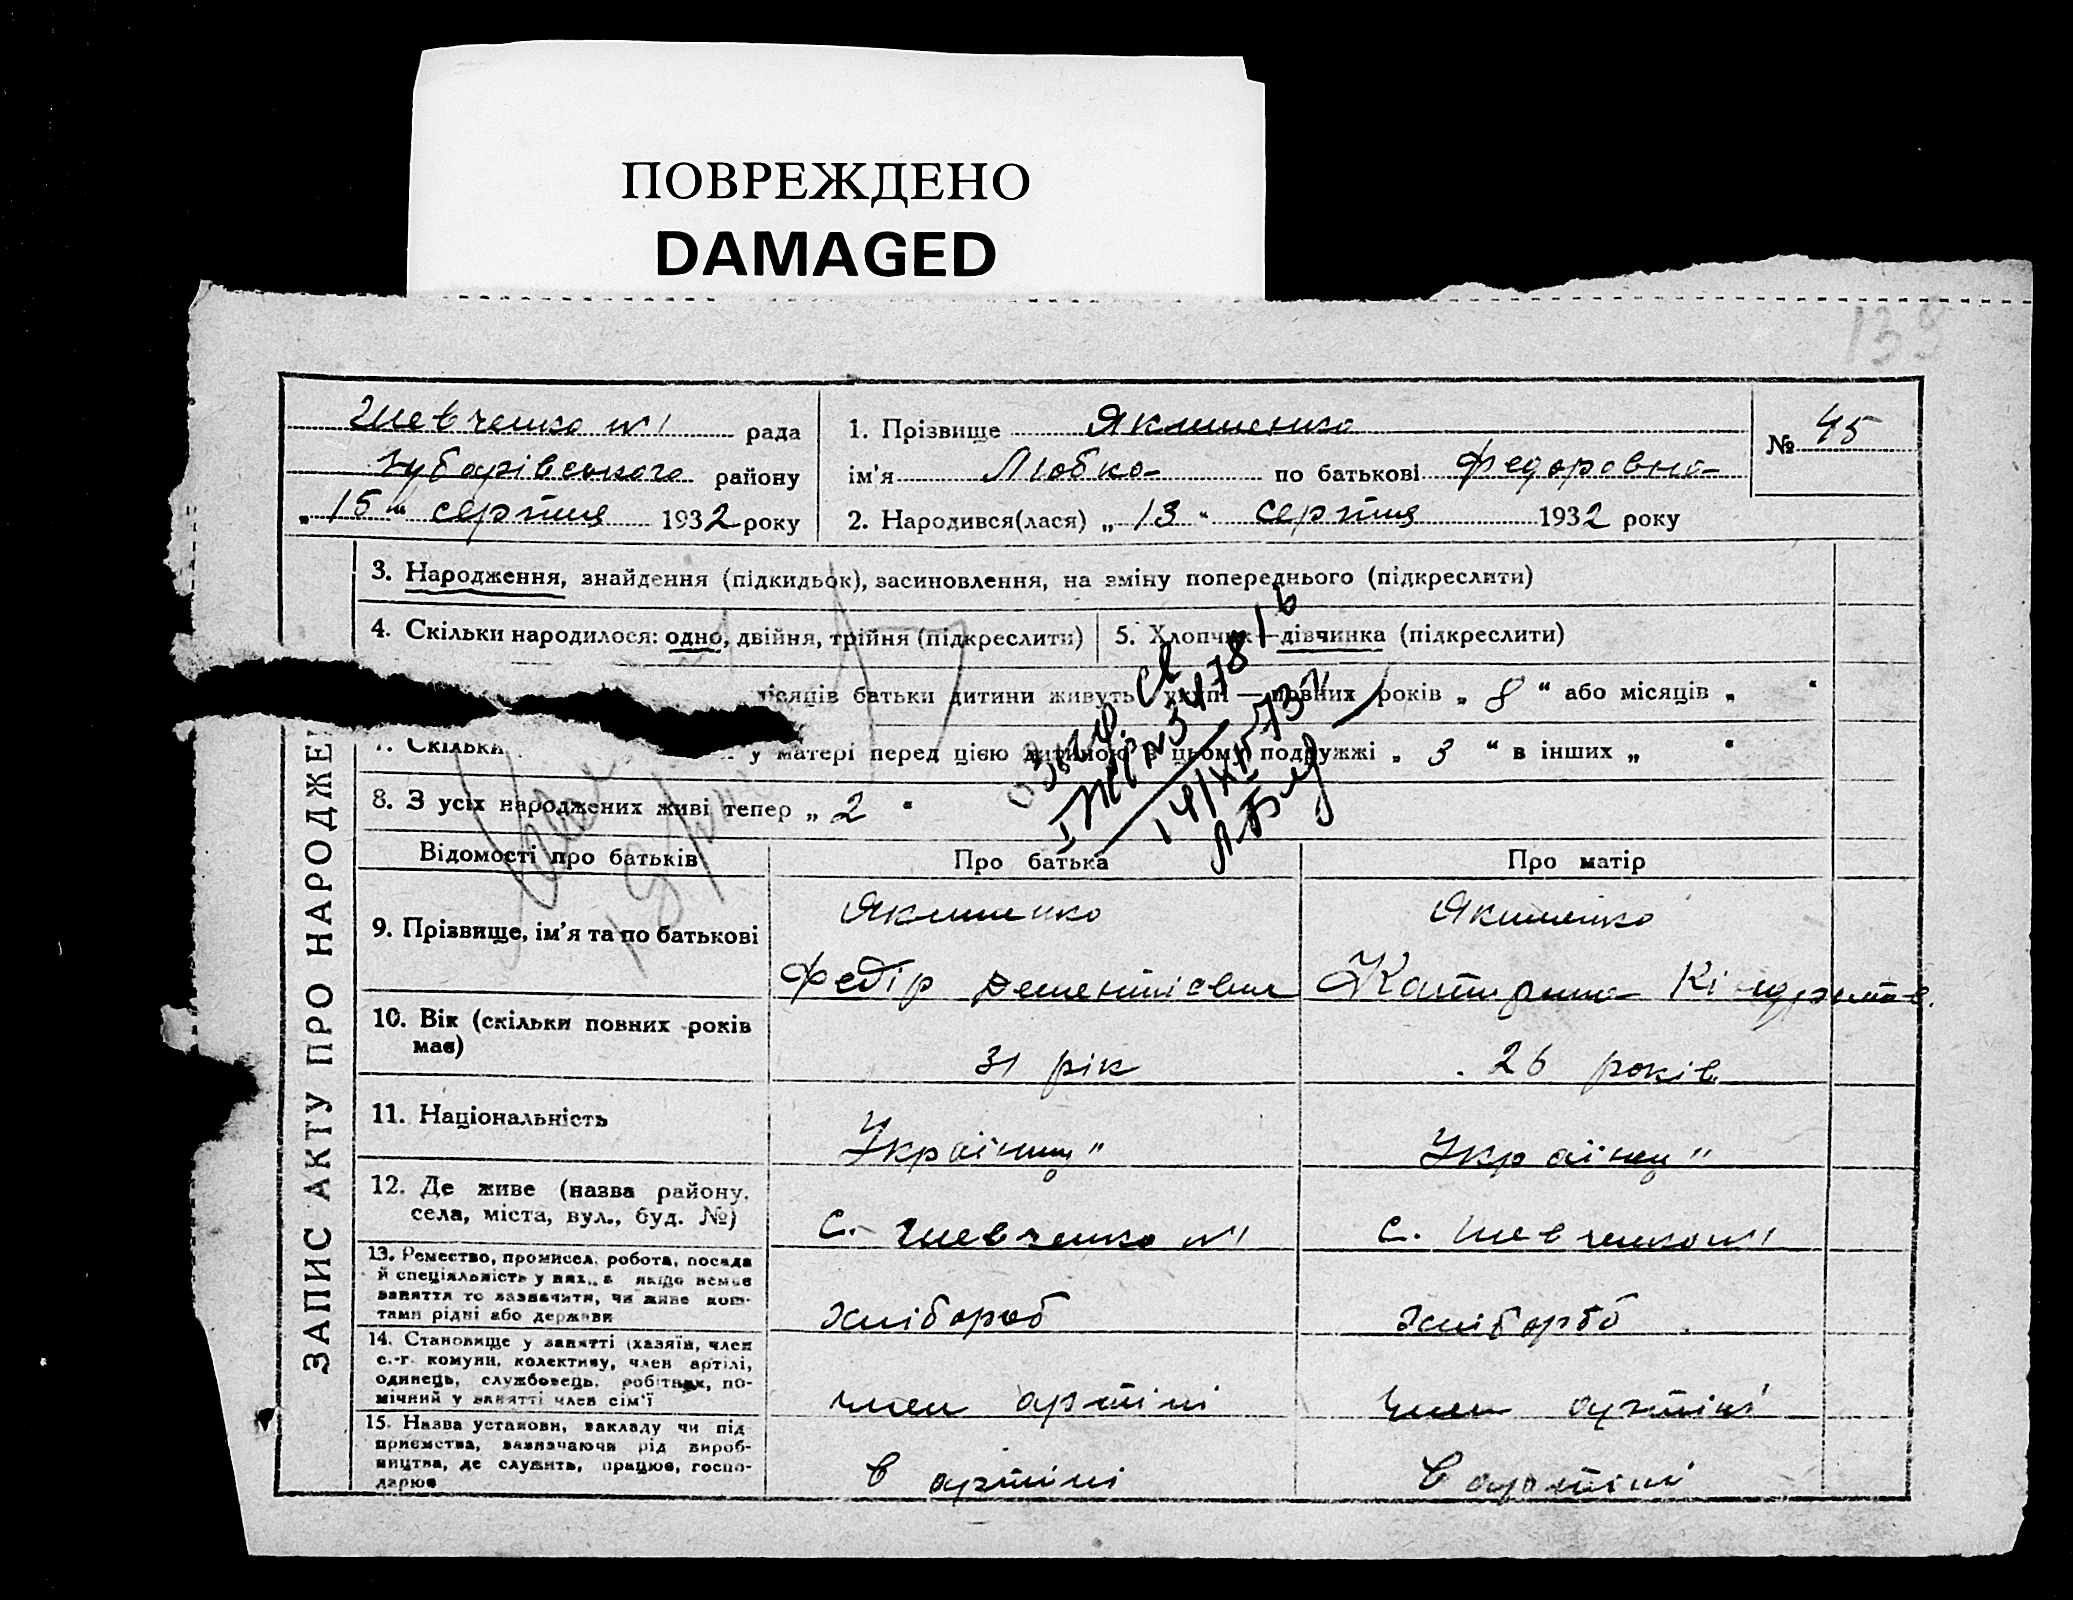 ПОВРЕЖДЕНО
DAMAGED
Шевченко №1 рада
Чубарівського району
„ 15 “ серпня 1932 року
1. Прізвище Якименко
ім’я Любка по батькові Федоровна
№ 45
2. Народився(лася) „ 13 “ серпня 1932 року
ЗАПИС АКТУ ПРО НАРОДЖЕ
3. Народження, знайдення (підкидьок), засиновлення, на зміну попереднього (підкреслити)
4. Скільки народилося: одно, двійня, трійня (підкреслити)
5. Хлопчик—дівчинка (підкреслити)
місяців батьки дитини живуть укупі — повних років „ 8 “ або місяців „ “
7. Скільки у матері перед цією дитиною в цьому подружжі „ 3 “ в інших „ “
8. З усіх народжених живі тепер „ 2 “
Відомості про батьків
Про батька
Про матір
9. Прізвище, ім’я та по батькові
Якименко
Федір Дементієвич
Якименко
Катирина Кіндратов.
10. Вік (скільки повних років
має)
31 рік
26 років
11. Національність
Українці"
Українц"
12. Де живе (назва району,
села, міста, вул., буд. №)
с. Шевченко №1
с. Шевченко №1
13. Ремество, промисел, робота, посада
й спеціяльність у них, а якщо немає
заняття то зазначити, чи живе кош-
тами рідні або держави
хлібороб
хлібороб
14. Становище у занятті (хазяїн, член
с.-г. комуни, колективу, член артілі,
одинець, службовець, робітник, по-
мічний у занятті член сім’ї
член артілі
член артілі
15. Назва установи, закладу чи під
приємства, зазначаючи рід вироб-
ництва, де служить, працює, госпо-
дарює
в артілі
в артілі